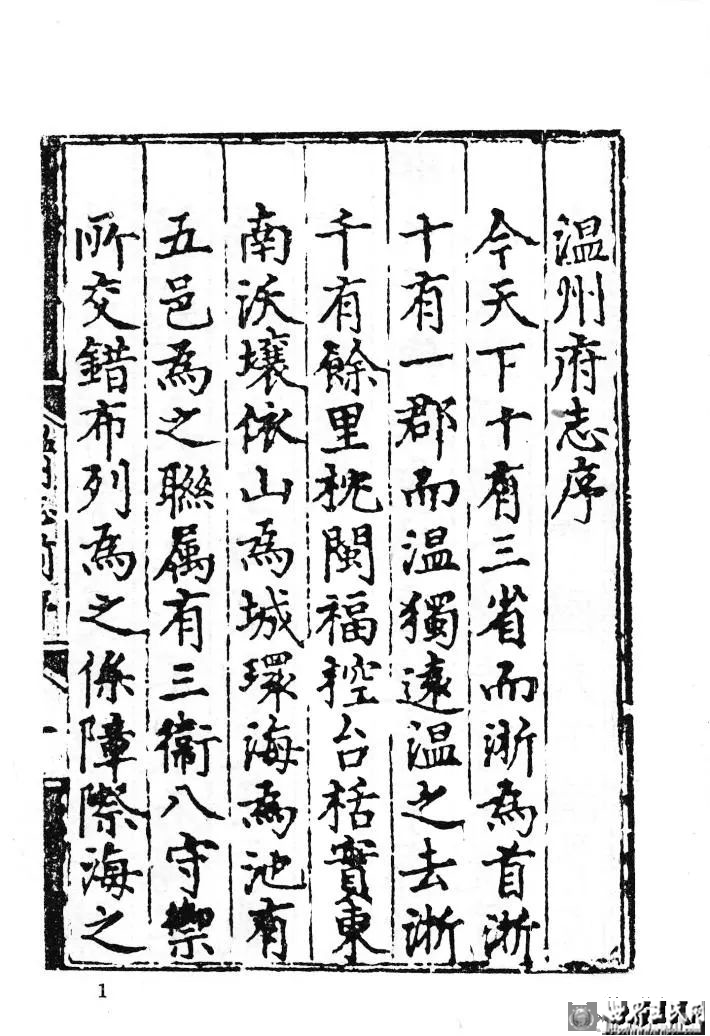 温州府志序
今天下十有三省而浙為首浙
十有一郡而温獨遠温之去浙
千有餘里枕閩福控台栝實東
南沃壤依山為城環海為池有
五邑為之聯属有三衛八守禦
所交錯布列為之保障際海之
1